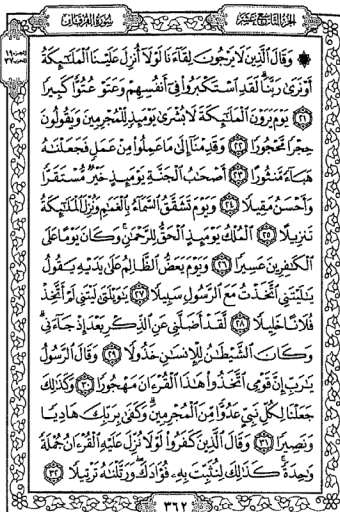 الجزء التاسع عشر
سورة الفرقان
۞ وَقَالَ ٱلَّذِينَ لَا يَرْجُونَ لِقَآءَنَا لَوْلَآ أُنزِلَ عَلَيْنَا ٱلْمَلَٰٓئِكَةُ
أَوْ نَرَىٰ رَبَّنَا ۗ لَقَدِ ٱسْتَكْبَرُوا۟ فِىٓ أَنفُسِهِمْ وَعَتَوْ عُتُوًّا كَبِيرًا
٢١ يَوْمَ يَرَوْنَ ٱلْمَلَٰٓئِكَةَ لَا بُشْرَىٰ يَوْمَئِذٍ لِّلْمُجْرِمِينَ وَيَقُولُونَ
حِجْرًا مَّحْجُورًا ٢٢ وَقَدِمْنَآ إِلَىٰ مَا عَمِلُوا۟ مِنْ عَمَلٍ فَجَعَلْنَٰهُ
هَبَآءً مَّنثُورًا ٢٣ أَصْحَٰبُ ٱلْجَنَّةِ يَوْمَئِذٍ خَيْرٌ مُّسْتَقَرًّا
وَأَحْسَنُ مَقِيلًا ٢٤ وَيَوْمَ تَشَقَّقُ ٱلسَّمَآءُ بِٱلْغَمَٰمِ وَنُزِّلَ ٱلْمَلَٰٓئِكَةُ
تَنزِيلًا ٢٥ ٱلْمُلْكُ يَوْمَئِذٍ ٱلْحَقُّ لِلرَّحْمَٰنِ ۚ وَكَانَ يَوْمًا عَلَى
ٱلْكَٰفِرِينَ عَسِيرًا ٢٦ وَيَوْمَ يَعَضُّ ٱلظَّالِمُ عَلَىٰ يَدَيْهِ يَقُولُ
يَٰلَيْتَنِى ٱتَّخَذْتُ مَعَ ٱلرَّسُولِ سَبِيلًا ٢٧ يَٰوَيْلَتَىٰ لَيْتَنِى لَمْ أَتَّخِذْ
فُلَانًا خَلِيلًا ٢٨ لَّقَدْ أَضَلَّنِى عَنِ ٱلذِّكْرِ بَعْدَ إِذْ جَآءَنِى ۗ
وَكَانَ ٱلشَّيْطَٰنُ لِلْإِنسَٰنِ خَذُولًا ٢٩ وَقَالَ ٱلرَّسُولُ
يَٰرَبِّ إِنَّ قَوْمِى ٱتَّخَذُوا۟ هَٰذَا ٱلْقُرْءَانَ مَهْجُورًا ٣٠ وَكَذَٰلِكَ
جَعَلْنَا لِكُلِّ نَبِىٍّ عَدُوًّا مِّنَ ٱلْمُجْرِمِينَ ۗ وَكَفَىٰ بِرَبِّكَ هَادِيًا
وَنَصِيرًا ٣١ وَقَالَ ٱلَّذِينَ كَفَرُوا۟ لَوْلَا نُزِّلَ عَلَيْهِ ٱلْقُرْءَانُ جُمْلَةً
وَٰحِدَةً ۚ كَذَٰلِكَ لِنُثَبِّتَ بِهِۦ فُؤَادَكَ ۖ وَرَتَّلْنَٰهُ تَرْتِيلًا ٣٢
٣٦٢